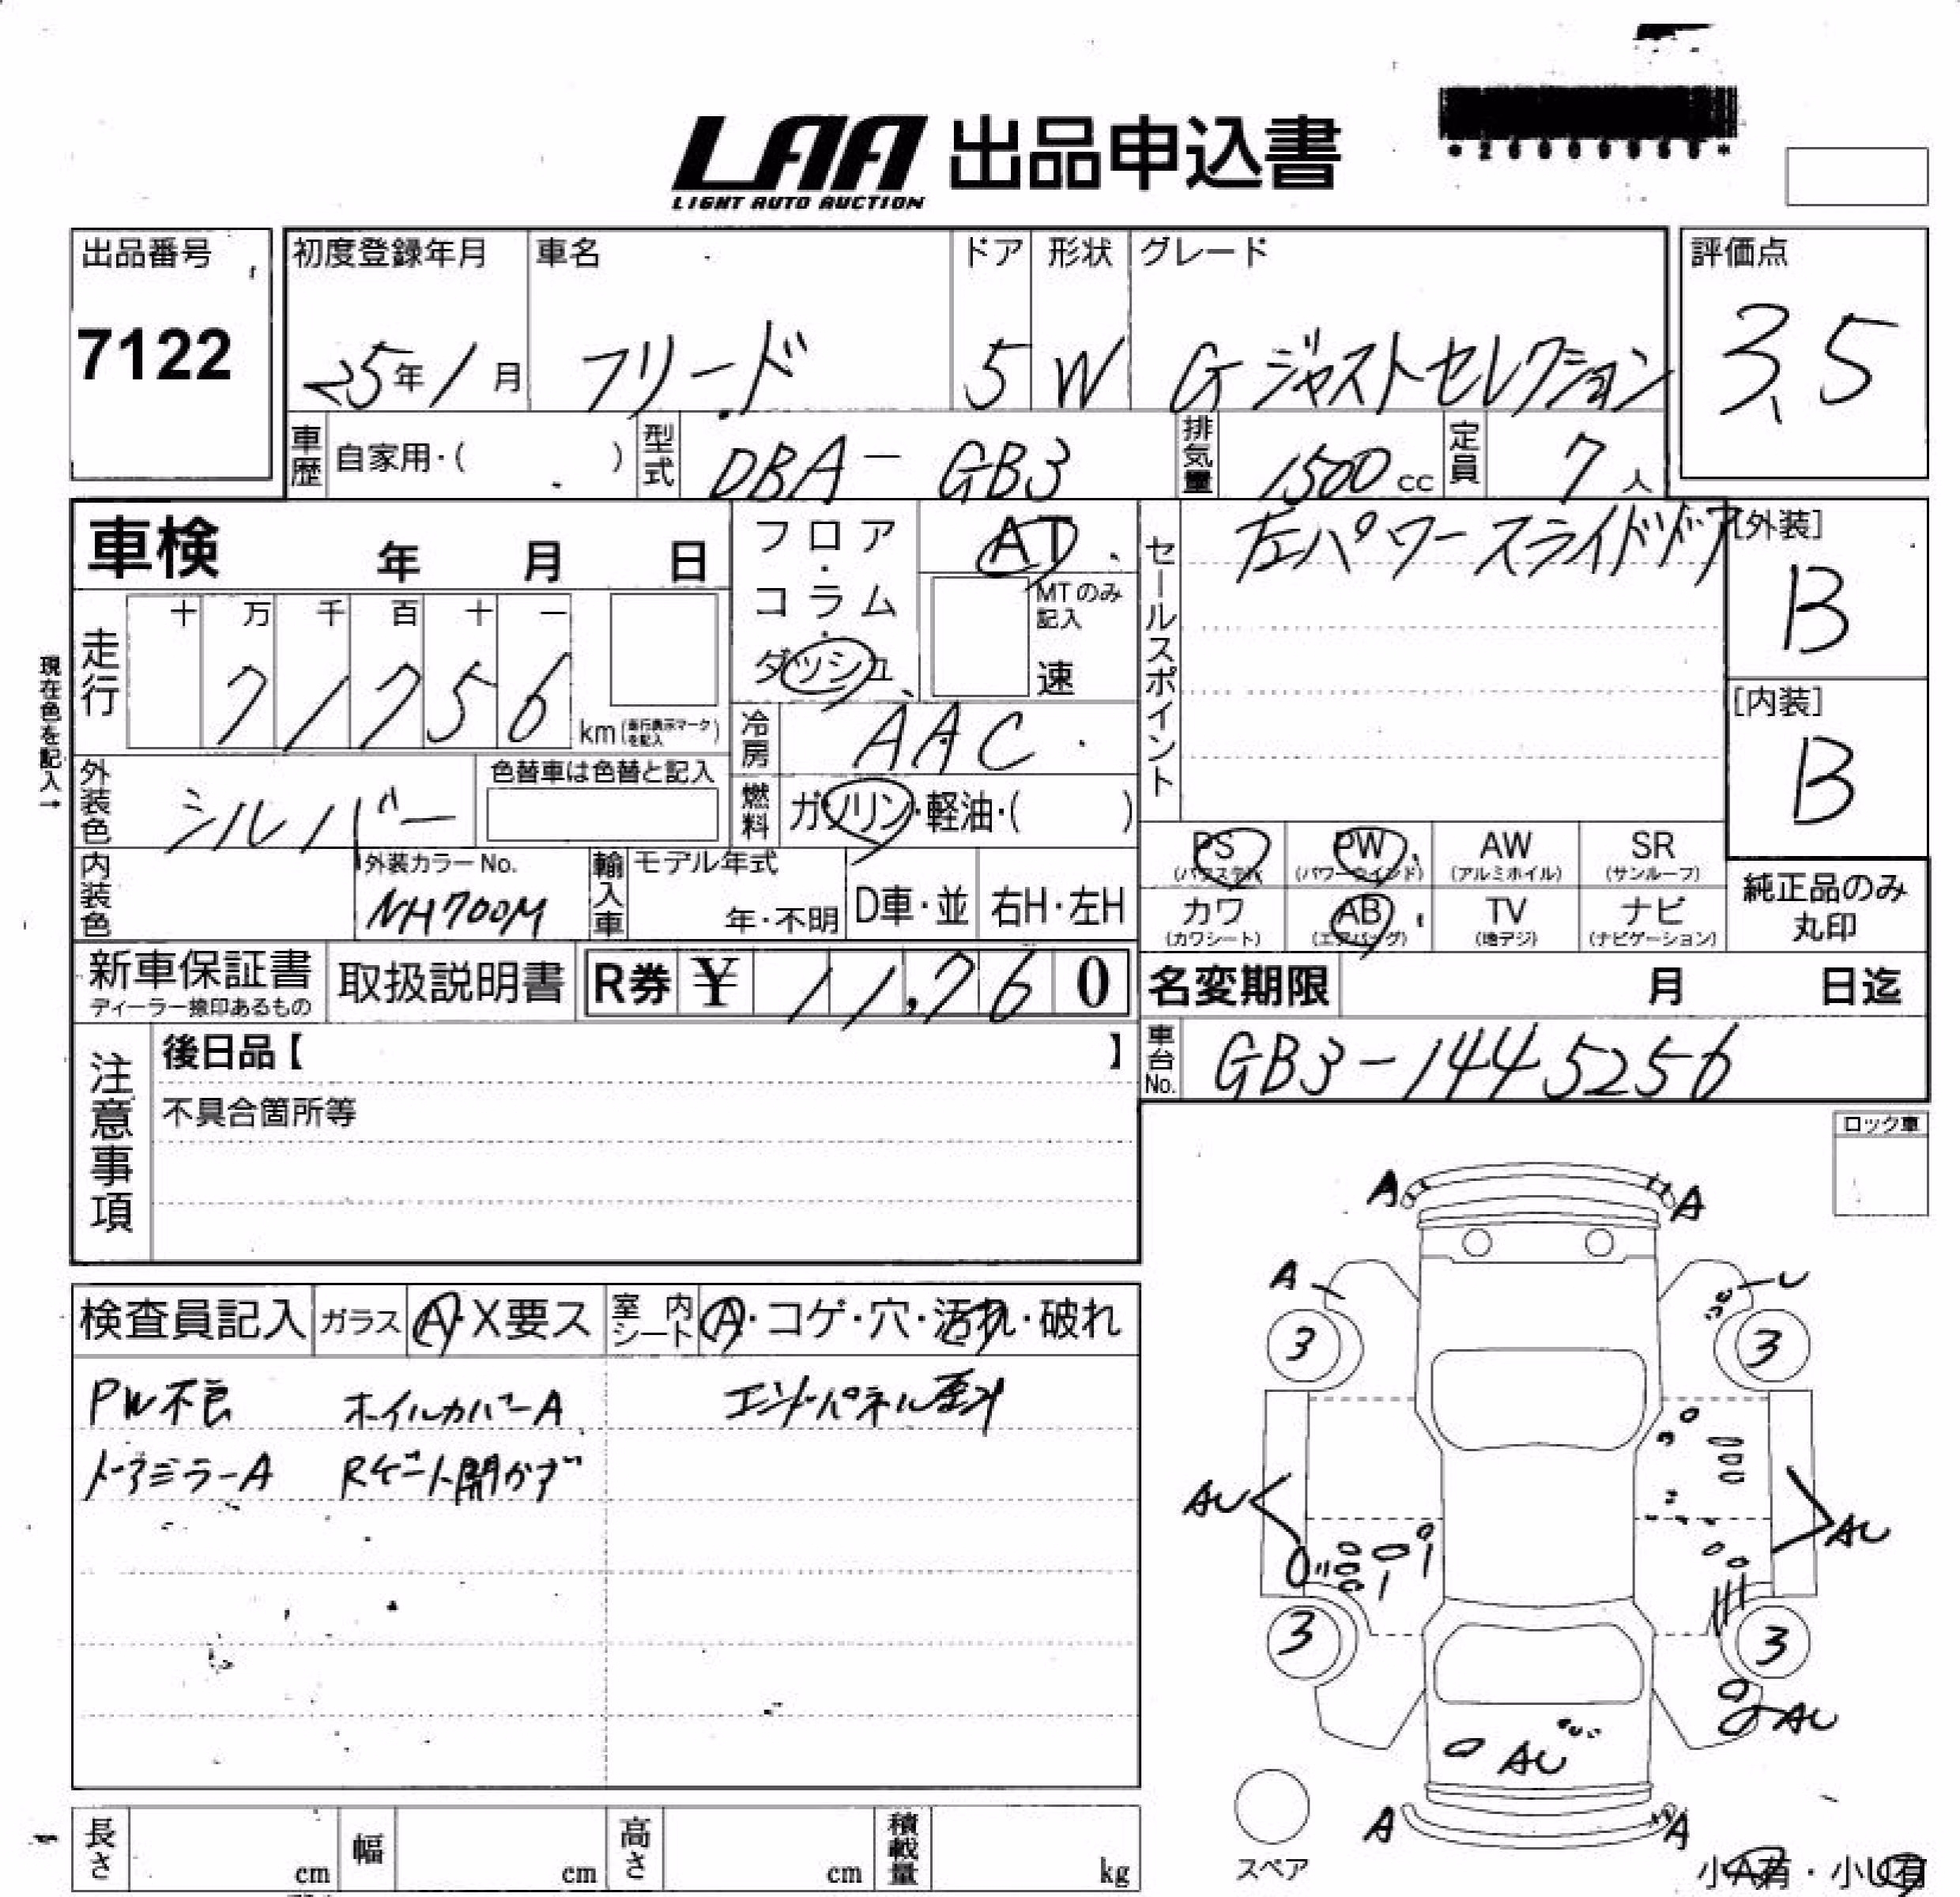 LAA 出品申込書
LIGHT AUTO AUCTION
出品番号
7122
初度登録年月
25年1月
車名
フリード
ドア
5
形状
W
グレード
G ジャストセレクション
評価点
3.5
車歴
自家用・( )
型式
DBA - GB3
排気量
1500 cc
定員
7人
車検 年 月 日
フロア・コラム・ダッシュ
AT
MTのみ記入
速
セールスポイント
左パワースライドドア
[外装]
B
[内装]
B
現在色を記入→
走行
十 万 千 百 十 一
7 1 7 5 6
km (走行表示マークを記入)
冷房
AAC
外装色
シルバー
色替車は色替と記入
燃料
ガソリン・軽油・( )
内装色
外装カラーNo.
NH700M
輸入車
モデル年式
年・不明
D車・並
右H・左H
PS
(パワステ)
PW
(パワーウインド)
AW
(アルミホイル)
SR
(サンルーフ)
カワ
(カワシート)
AB
(エアバッグ)
TV
(地デジ)
ナビ
(ナビゲーション)
純正品のみ
丸印
新車保証書
ディーラー捺印あるもの
取扱説明書
R券 ¥ 11,760
名変期限 月 日迄
注意事項
後日品【 】
不具合箇所等
車台No.
GB3-1445256
ロック車
検査員記入
ガラス
A・X要ス
室内シート
A・コゲ・穴・汚れ・破れ
PW不良 ホイルカバーA
ドアミラーA Rゲート開かず
A A
A U
3 3
AU AU
3 3
AU
AU
A A
スペア
小A有・小U有
長さ cm
幅 cm
高さ cm
積載量 kg